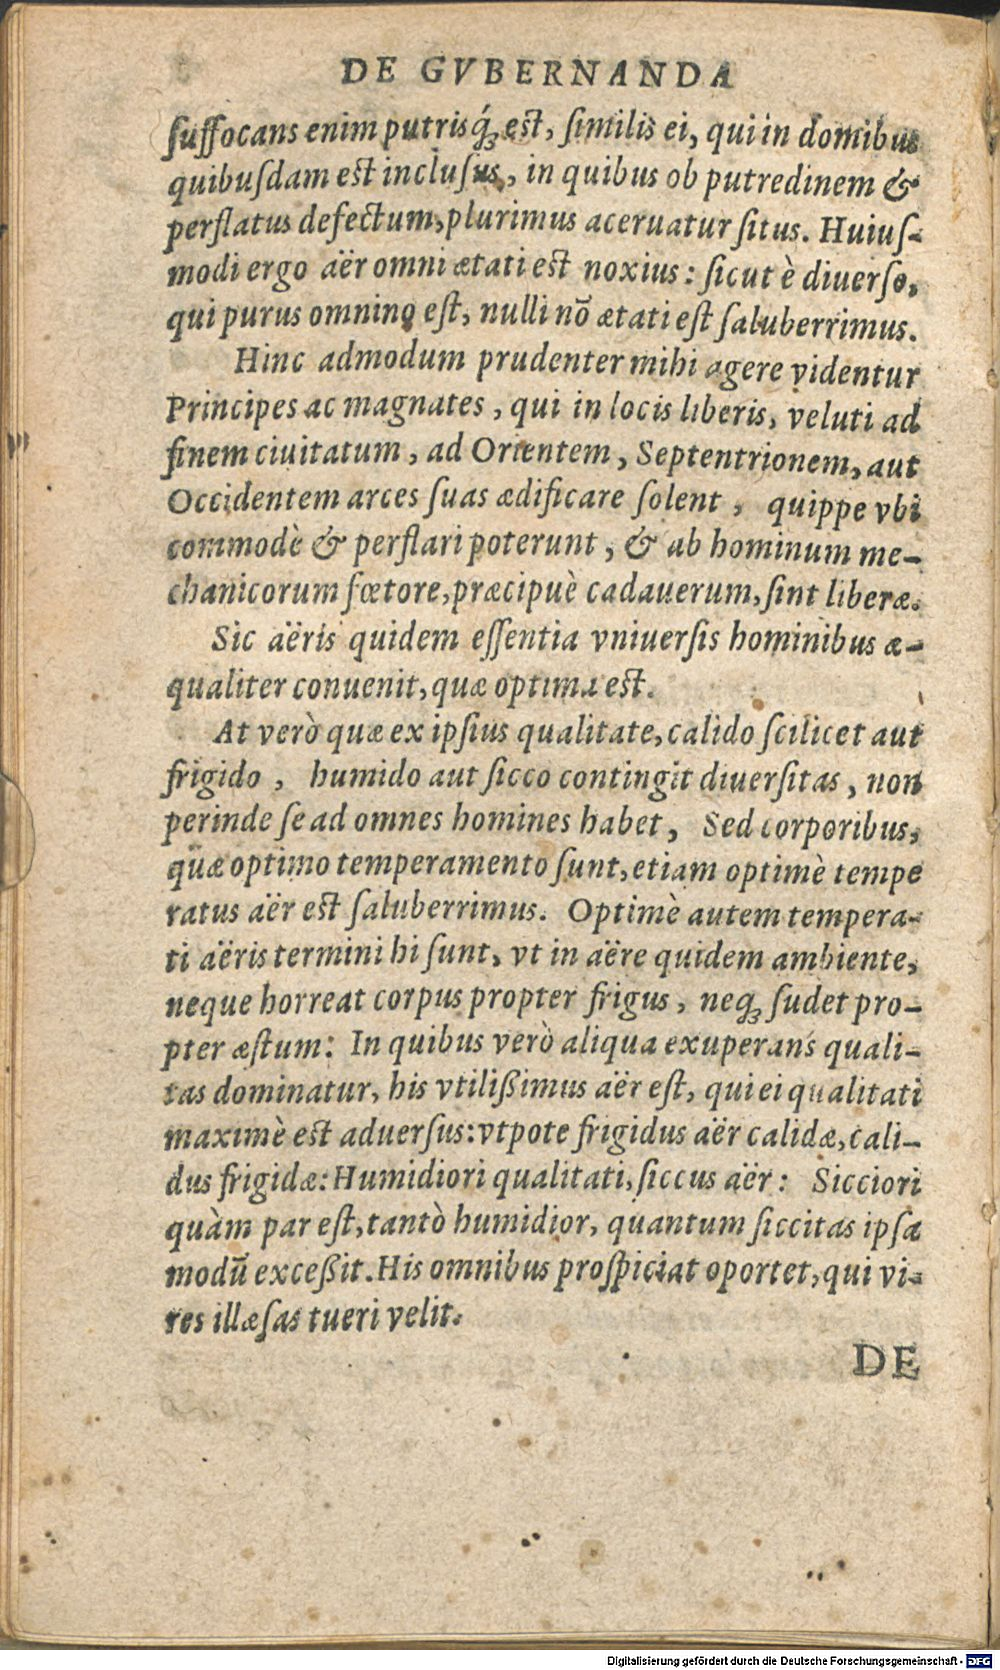 DE GVBERNANDA
ſuffocans enim putrisq́ꝫ eſt, ſimilis ei, qui in domibus
quibuſdam eſt incluſus, in quibus ob putredinem &
perflatus defectum, plurimus aceruatur ſitus. Huiuſ-
modi ergo aër omni ætati eſt noxius: ſicut è diuerſo,
qui purus omnino eſt, nulli nō ætati eſt ſaluberrimus.
Hinc admodum prudenter mihi agere videntur
Principes ac magnates, qui in locis liberis, veluti ad
finem ciuitatum, ad Orientem, Septentrionem, aut
Occidentem arces ſuas ædificare ſolent, quippe vbi
commodè & perflari poterunt, & ab hominum me-
chanicorum fœtore, præcipuè cadauerum, ſint liberæ.
Sic aëris quidem eſſentia vniuerſis hominibus æ-
qualiter conuenit, quæ optima eſt.
At verò quæ ex ipſius qualitate, calido ſcilicet aut
frigido, humido aut ſicco contingit diuerſitas, non
perinde ſe ad omnes homines habet, Sed corporibus,
quæ optimo temperamento ſunt, etiam optimè tempe
ratus aër eſt ſaluberrimus. Optimè autem tempera-
ti aëris termini hi ſunt, vt in aëre quidem ambiente,
neque horreat corpus propter frigus, neqꝫ ſudet pro-
pter æſtum: In quibus verò aliqua exuperans quali-
tas dominatur, his vtilißimus aër eſt, qui ei qualitati
maximè eſt aduerſus: vtpote frigidus aër calidæ, cali-
dus frigidæ: Humidiori qualitati, ſiccus aër: Sicciori
quàm par eſt, tantò humidior, quantum ſiccitas ipſa
modū exceßit. His omnibus proſpiciat oportet, qui vi-
res illæſas tueri velit.
DE
Digitalisierung gefördert durch die Deutsche Forschungsgemeinschaft - DFG